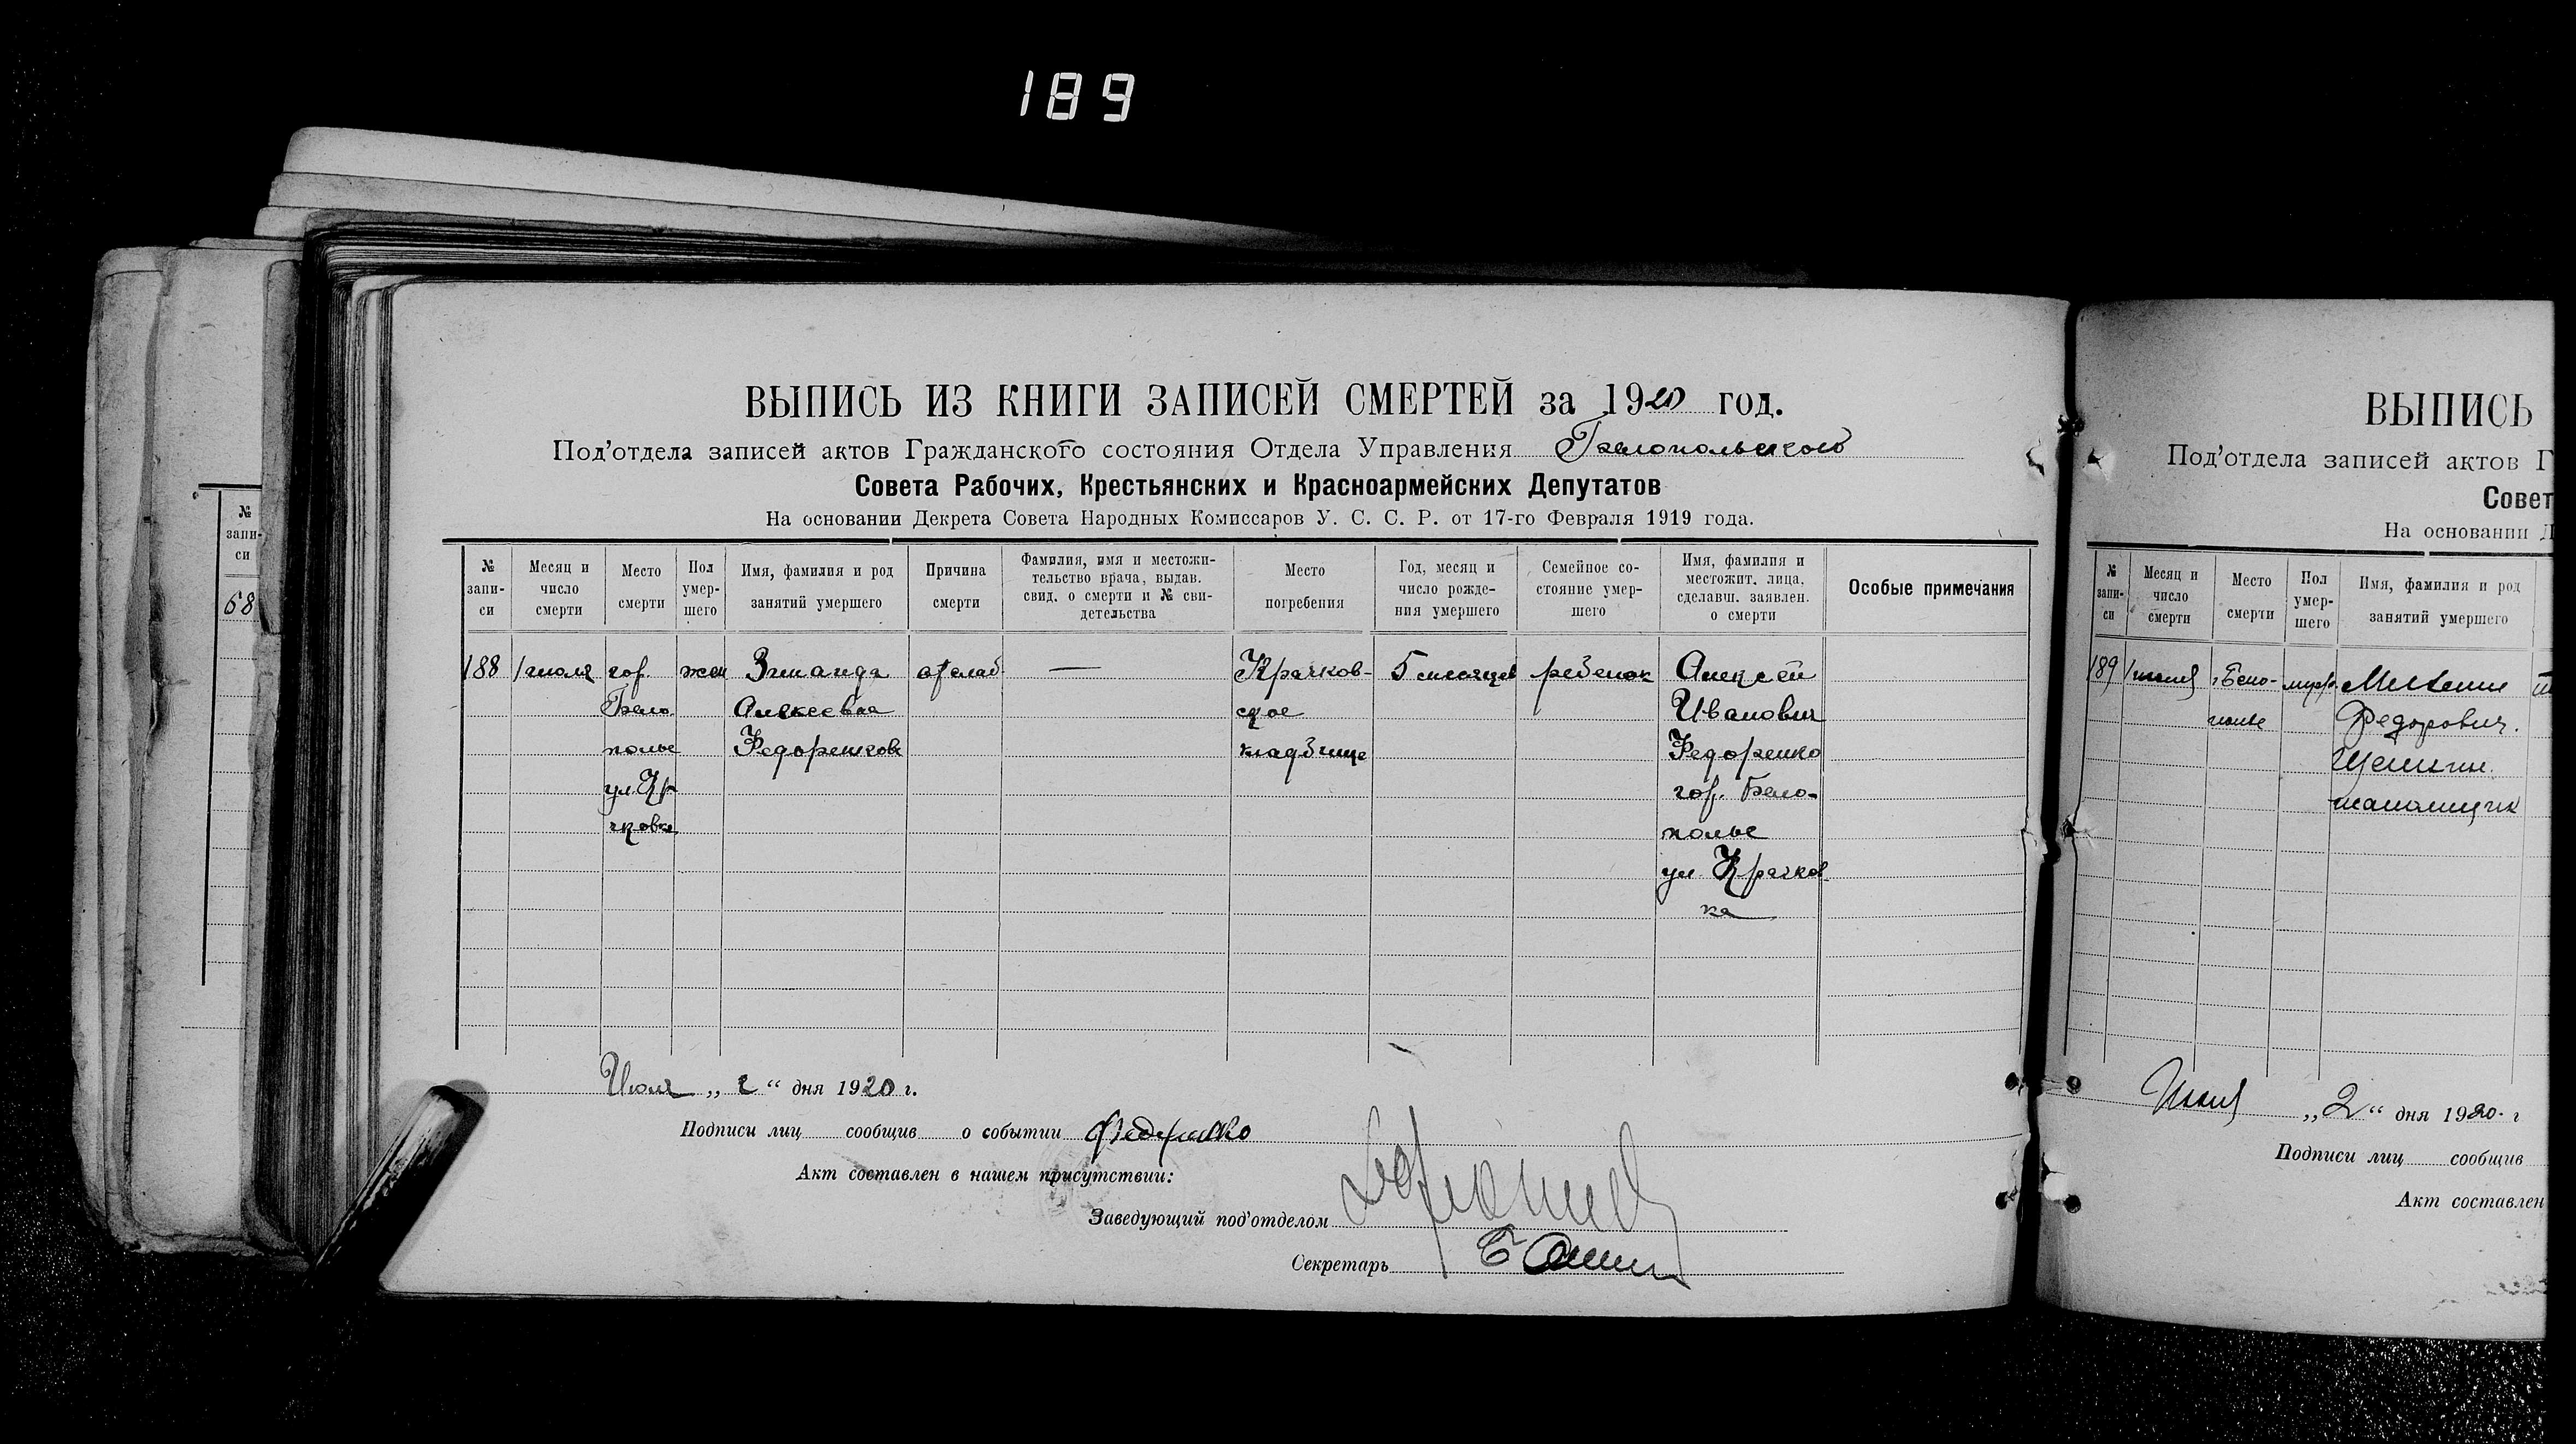 189
ВЫПИСЬ ИЗ КНИГИ ЗАПИСЕЙ СМЕРТЕЙ за 1920 год.
Под'отдела записей актов Гражданского состояния Отдела Управления Белопольского
Совета Рабочих, Крестьянских и Красноармейских Депутатов
На основании Декрета Совета Народных Комиссаров У. С. С. Р. от 17-го Февраля 1919 года.
№ запи-
си
Месяц и
число
смерти
Место
смерти
Пол
умер-
шего
Имя, фамилия и род
занятий умершего
Причина
смерти
Фамилия, имя и местожи-
тельство врача, выдав.
свид. о смерти и № сви-
детельства
Место
погребения
Год, месяц и
число рожде-
ния умершего
Семейное со-
стояние умер-
шего
Имя, фамилия и
местожит. лица,
сделавш. заявлен.
о смерти
Особые примечания
188
1 июля
гор.
Бело
полье
ул. Кр
чковка
жен
Зинаида
Алексеевна
Федоренкова
от слаб
—
Крачков-
ское
кладбище
5 месяцев
ребенок
Алексей
Иванович
Федоренко
гор. Бело-
полье
ул. Крачков
ка
Июля „ 2 “ дня 1920 г.
Подписи лиц сообщив о событии Федоренко
Акт составлен в нашем присутствии:
Заведующий под'отделом
Секретарь
№
запи-
си
68
ВЫПИСЬ
Под'отдела записей актов Г
Совет
На основании Д
№
запи-
си
Месяц и
число
смерти
Место
смерти
Пол
умер-
шего
Имя, фамилия и род
занятий умершего
189
1 июля
г. Бело-
полье
муж.
Федорович.
Июля „ 2 “ дня 1920 г
Подписи лиц сообщив
Акт составлен